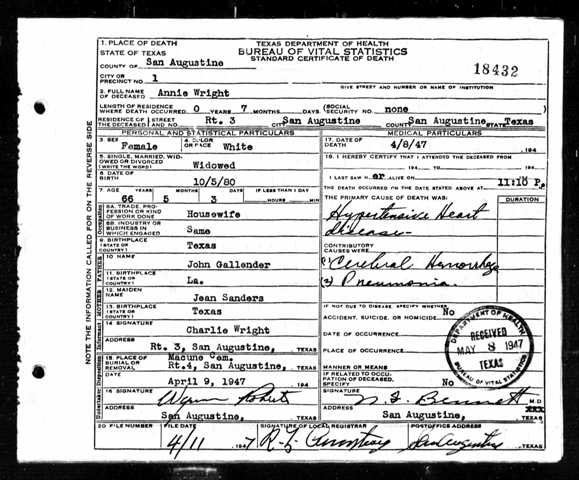 1. PLACE OF DEATH
STATE OF TEXAS
COUNTY OF San Augustine
CITY OR PRECINCT NO. 1
TEXAS DEPARTMENT OF HEALTH
BUREAU OF VITAL STATISTICS
STANDARD CERTIFICATE OF DEATH
18432
GIVE STREET AND NUMBER OR NAME OF INSTITUTION
2. FULL NAME OF DECEASED Annie Wright
LENGTH OF RESIDENCE WHERE DEATH OCCURRED 0 YEARS 7 MONTHS DAYS (SOCIAL SECURITY NO. none
RESIDENCE OF THE DECEASED STREET NO. Rt. 3 CITY San Augustine COUNTY San Augustine STATE Texas
PERSONAL AND STATISTICAL PARTICULARS
3. SEX Female 4. COLOR OR RACE White
5. SINGLE, MARRIED, WIDOWED OR DIVORCED (WRITE THE WORD) Widowed
6. DATE OF BIRTH 10/5/80
7. AGE YEARS MONTHS DAYS IF LESS THAN 1 DAY
66 5 3 HOURS MIN
8A. TRADE, PROFESSION OR KIND OF WORK DONE Housewife
8B. INDUSTRY OR BUSINESS IN WHICH ENGAGED Same
9. BIRTHPLACE (STATE OR COUNTRY) Texas
10. NAME John Gallender
11. BIRTHPLACE (STATE OR COUNTRY) La.
12. MAIDEN NAME Jean Sanders
13. BIRTHPLACE (STATE OR COUNTRY) Texas
14. SIGNATURE Charlie Wright
ADDRESS Rt. 3, San Augustine, TEXAS
15. PLACE OF BURIAL OR REMOVAL Macune Cem.
Rt.4, San Augustine, TEXAS
DATE April 9, 1947 194
16. SIGNATURE
San Augustine, TEXAS
MEDICAL PARTICULARS
17. DATE OF DEATH 4/8/47 194
18. I HEREBY CERTIFY THAT I ATTENDED THE DECEASED FROM
194 TO 194
I LAST SAW H er ALIVE ON 194
THE DEATH OCCURRED ON THE DATE STATED ABOVE AT 11:10 P.
THE PRIMARY CAUSE OF DEATH WAS: DURATION
Hypertensive Heart
disease
CONTRIBUTORY CAUSES WERE:
(1) Cerebral Hemorrhage
(2) Pneumonia.
IF NOT DUE TO DISEASE, SPECIFY WHETHER:
ACCIDENT, SUICIDE, OR HOMICIDE. No
DATE OF OCCURRENCE
PLACE OF OCCURRENCE
MANNER OR MEANS
IF RELATED TO OCCUPATION OF DECEASED, SPECIFY No
SIGNATURE Bennett M.D.
ADDRESS San Augustine, TEXAS
DEPARTMENT OF HEALTH
RECEIVED
MAY 8 1947
TEXAS
BUREAU OF VITAL STATISTICS
20. FILE NUMBER FILE DATE SIGNATURE OF LOCAL REGISTRAR POSTOFFICE ADDRESS
4/11 1947 San Augustine TEXAS
NOTE THE INFORMATION CALLED FOR ON THE REVERSE SIDE